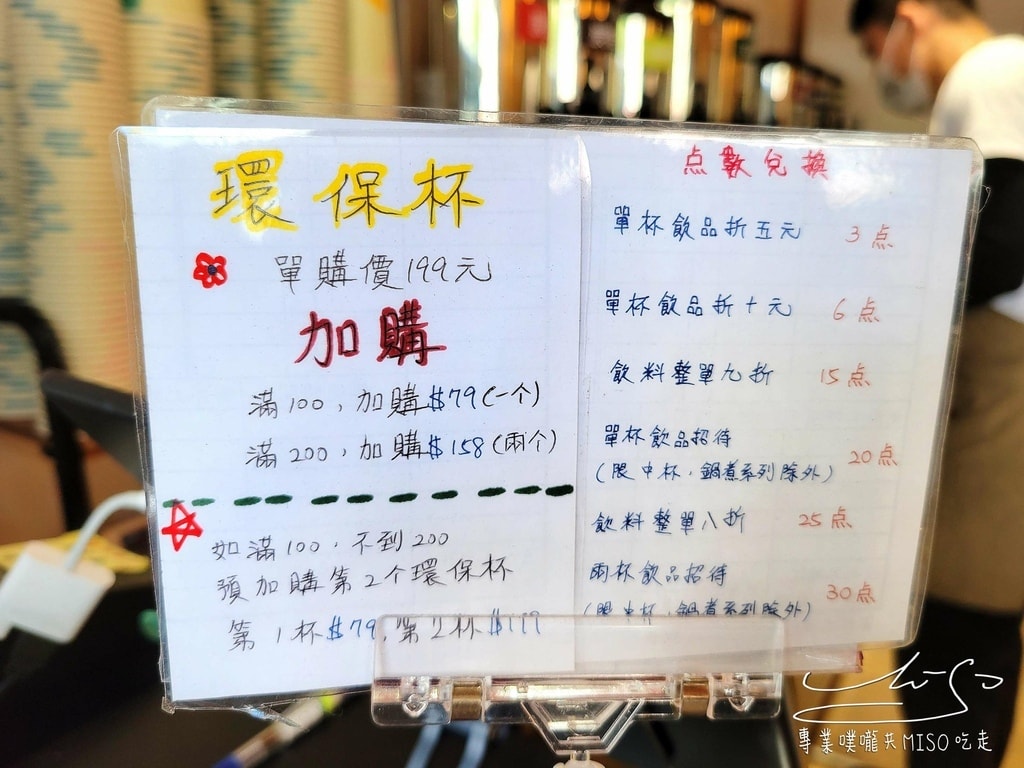 環保杯
單購價199元
加購
滿100，加購$79(一个)
滿200，加購$158(兩个)
如滿100，不到200
預加購第2个環保杯
第1杯$79，第2杯
点數兌換
單杯飲品折五元 3点
單杯飲品折十元 6点
飲料整單九折 15点
單杯飲品招待 20点
(限中杯，鍋煮系列除外)
飲料整單八折 25点
兩杯飲品招待 30点
(限中杯，鍋煮系列除外)
專業噗嚨共MISO吃走